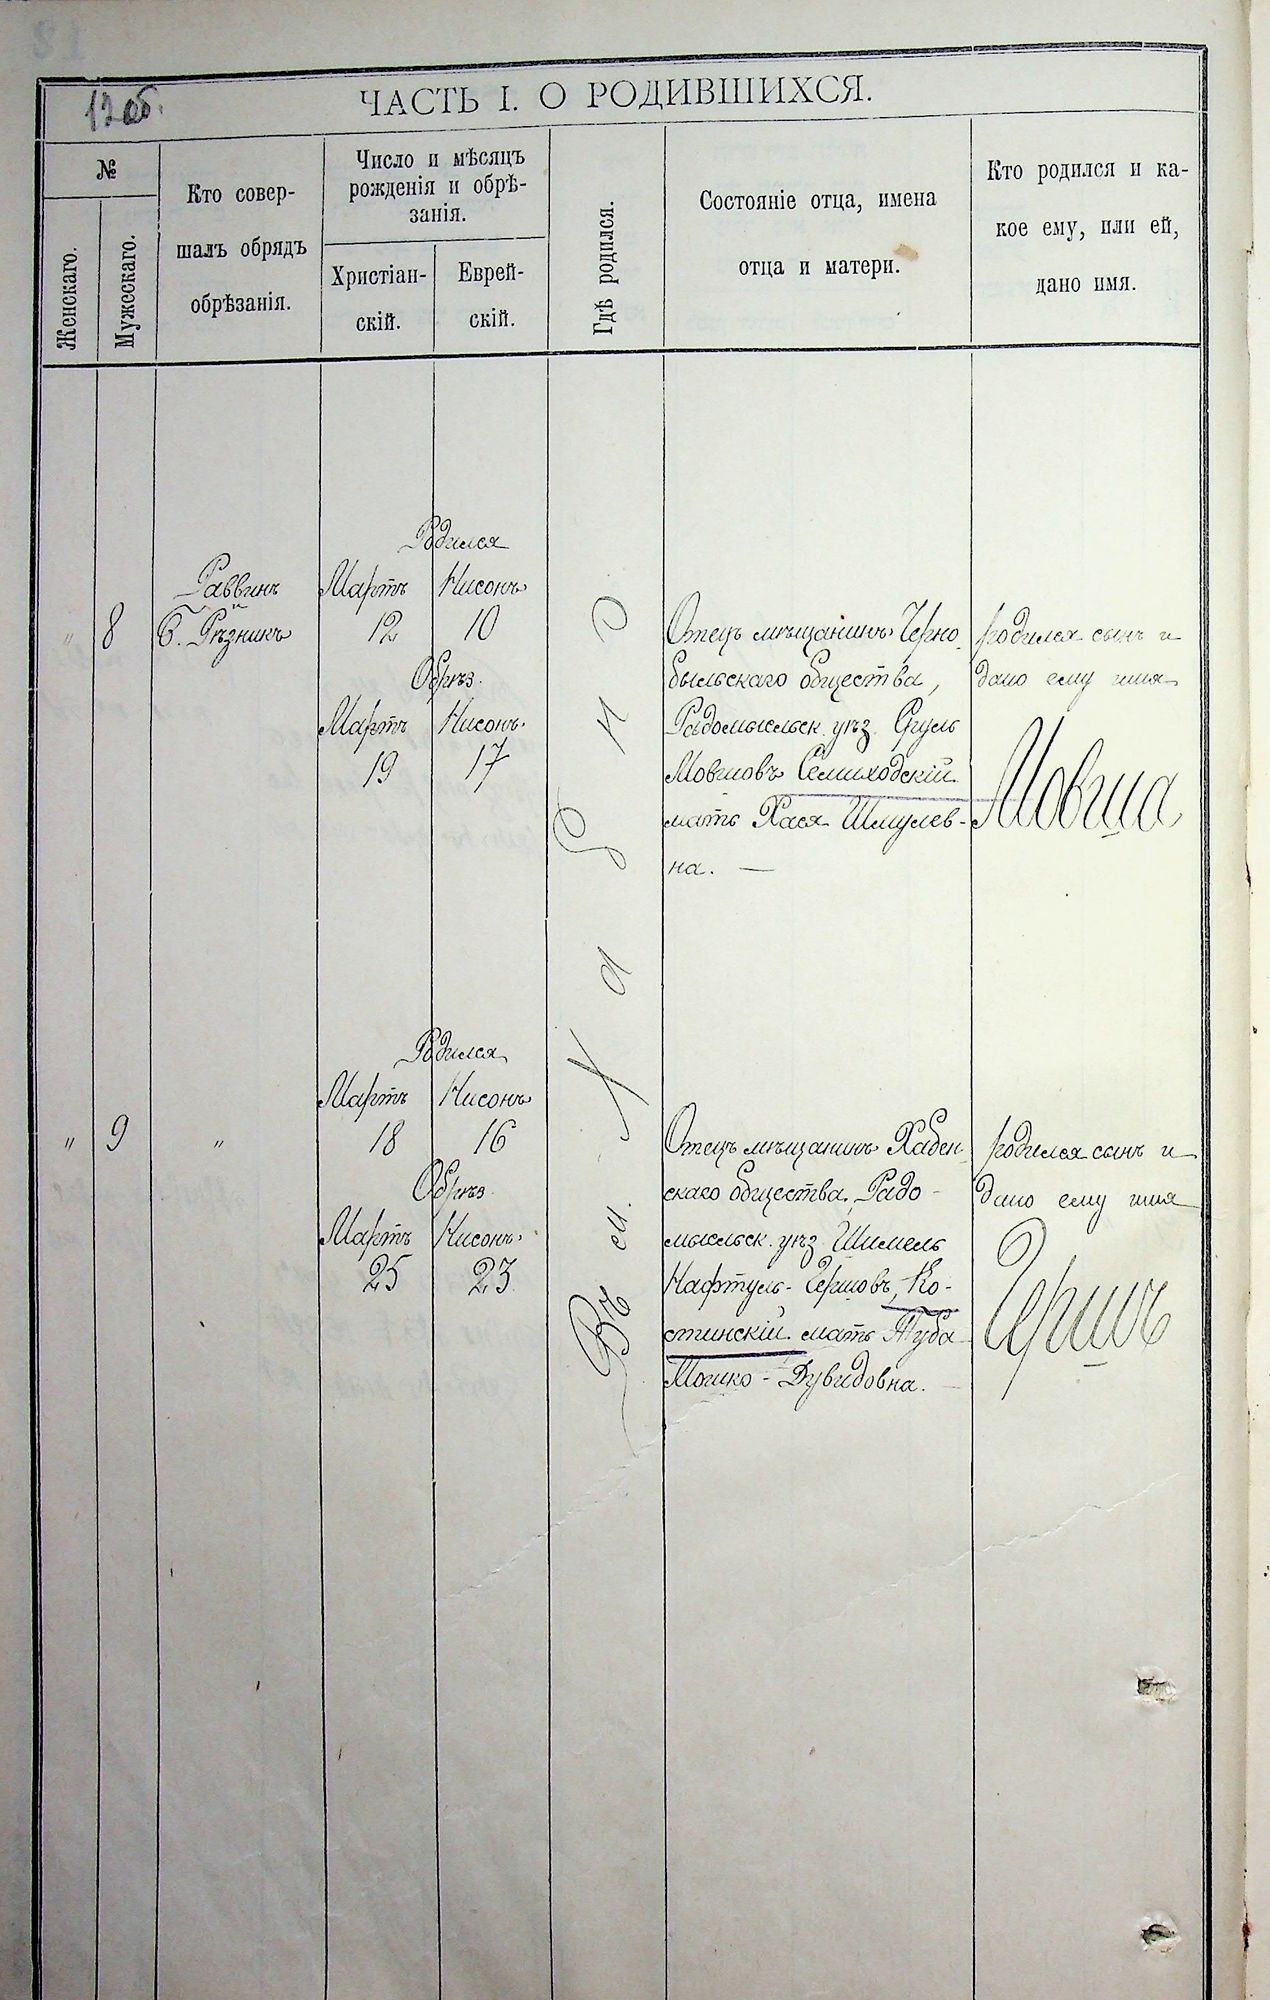 12 об.
ЧАСТЬ I. О РОДИВШИХСЯ.
№
Женскаго.
Мужескаго.
Кто совер-
шалъ обрядъ
обрѣзанія.
Число и мѣсяцъ
рожденія и обрѣ-
занія.
Христіан-
скій.
Еврей-
скій.
Гдѣ родился.
Состояніе отца, имена
отца и матери.
Кто родился и ка-
кое ему, или ей,
дано имя.
Въ м. Хабно
Родился
Раввинъ Мартъ Нисонъ
" 8 Б. Рѣзникъ 12 10
Обрѣз.
Мартъ Нисонъ
19 17
Отецъ мѣщанинъ Черно-
быльскаго общества,
Радомысльск. уѣз. Сруль
Мовшовъ Семиходскій
мать Хася Шмулев-
на. —
родился сынъ и
дано ему имя
Мовша
Родился
Мартъ Нисонъ
" 9 " 18 16
Обрѣз.
Мартъ Нисонъ
25 23
Отецъ мѣщанинъ Хабен-
скаго общества, Радо-
мысльск. уѣз. Шимель
Нафтуль-Гершовъ, Ко-
стинскій мать Туба
Мошко-Дувидовна. —
родился сынъ и
дано ему имя
Гершъ